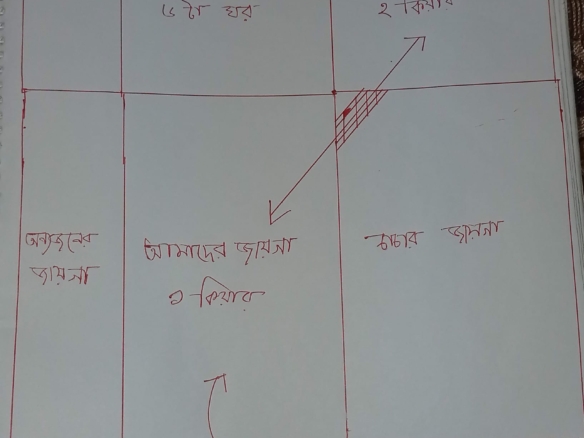 ৬ টা ঘর
২ কিয়ার
অন্যজনের
জায়গা
আমাদের জায়গা
১ কিয়ার
চাচার জায়গা